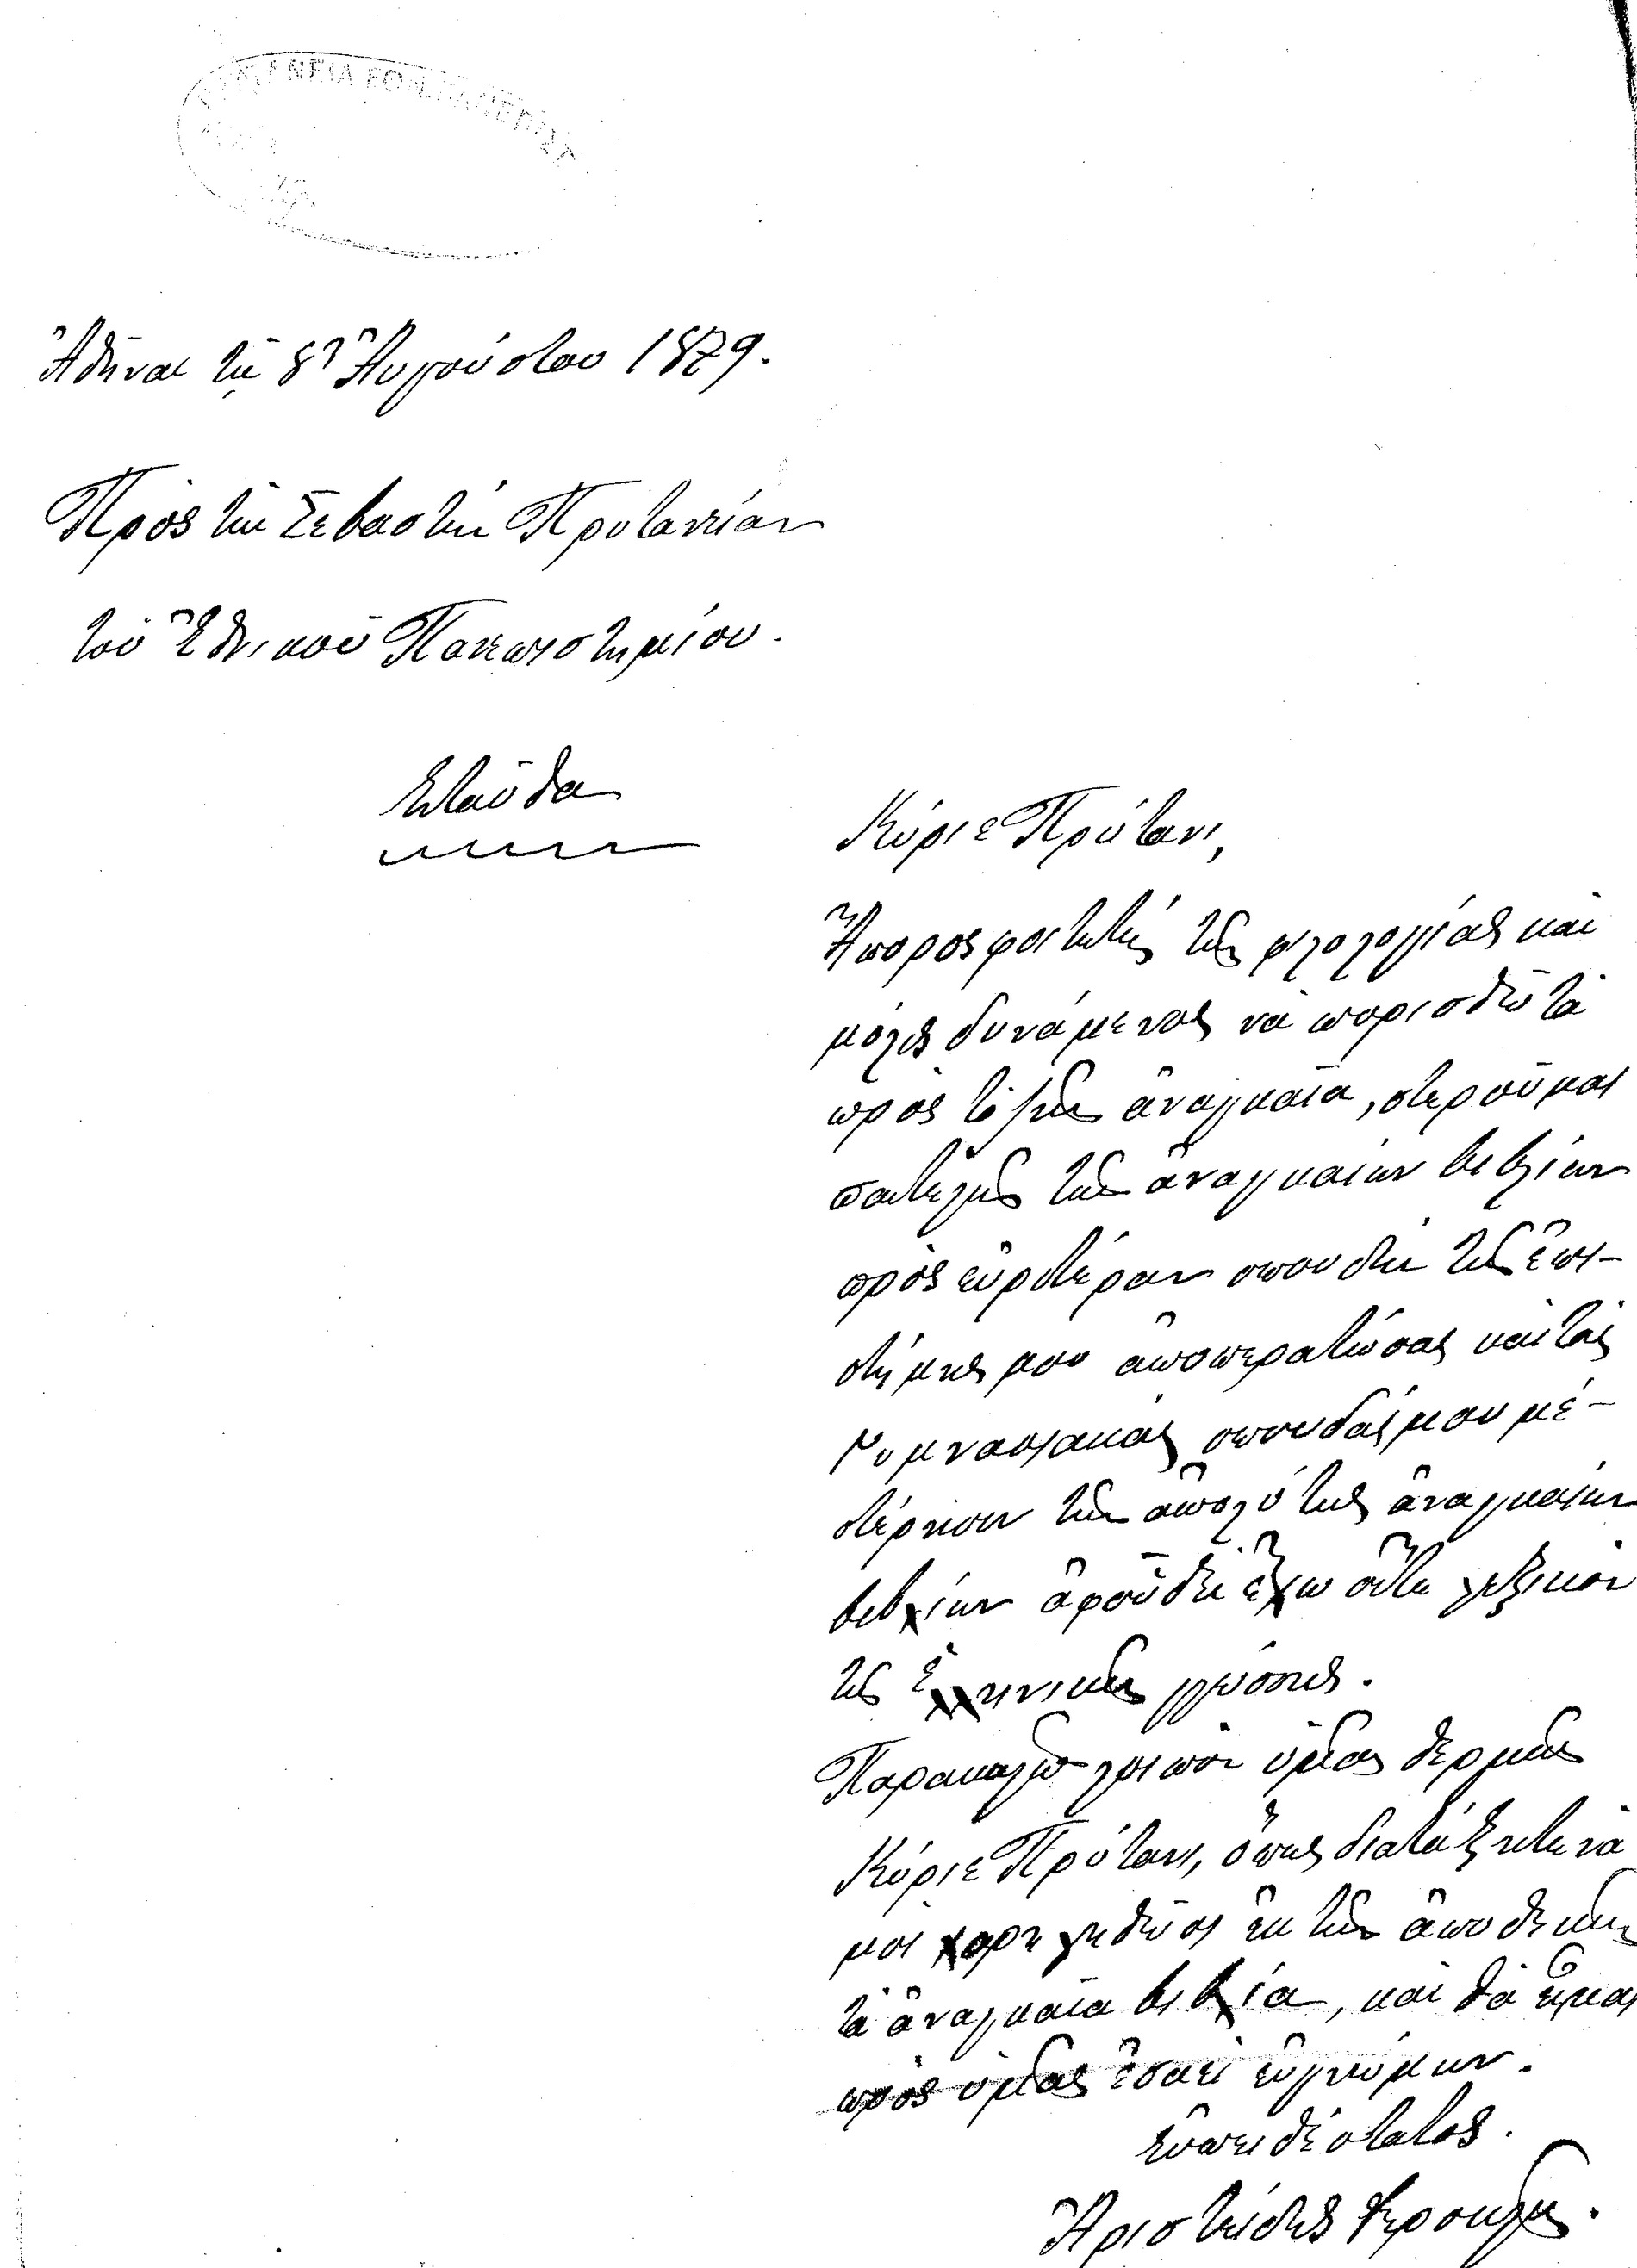 Ἀθῆναι τῇ 8ῃ Αὐγούστου 1879.
Πρὸς τὴν Σεβαστὴν Πρυτανείαν
τοῦ Ἐθνικοῦ Πανεπιστημίου.
Ἐνταῦθα
Κύριε Πρύτανι,
Ἄπορος φοιτητὴς τῆς φιλολογίας καὶ
μόλις δυνάμενος νὰ πορισθῶ τὰ
πρὸς τὸ ζῆν ἀναγκαῖα, στεροῦμαι
παντελῶς τῶν ἀναγκαίων βιβλίων
πρὸς εὐρυτέραν σπουδὴν τῆς ἐπι-
στήμης μου ἀποπερατώσας καὶ τὰς
γυμνασιακὰς σπουδάς μου μὲ
στέρησιν τῶν ἀπολύτως ἀναγκαίων
βιβλίων ἀφοῦ δὲν ἔχω οὔτε λεξικὸν
τῆς Ἑλληνικῆς γλώσσης.
Παρακαλῶ λοιπὸν ὑμᾶς θερμῶς
Κύριε Πρύτανι, ὅπως διατάξητε νὰ
μοὶ χορηγηθῶσι ἐκ τῶν ἀποθηκῶν
τὰ ἀναγκαῖα βιβλία, καὶ θὰ ἦμαι
πρὸς ὑμᾶς ἐσαεὶ εὐγνώμων.
εὐπειθέστατος.
Ἀριστείδης